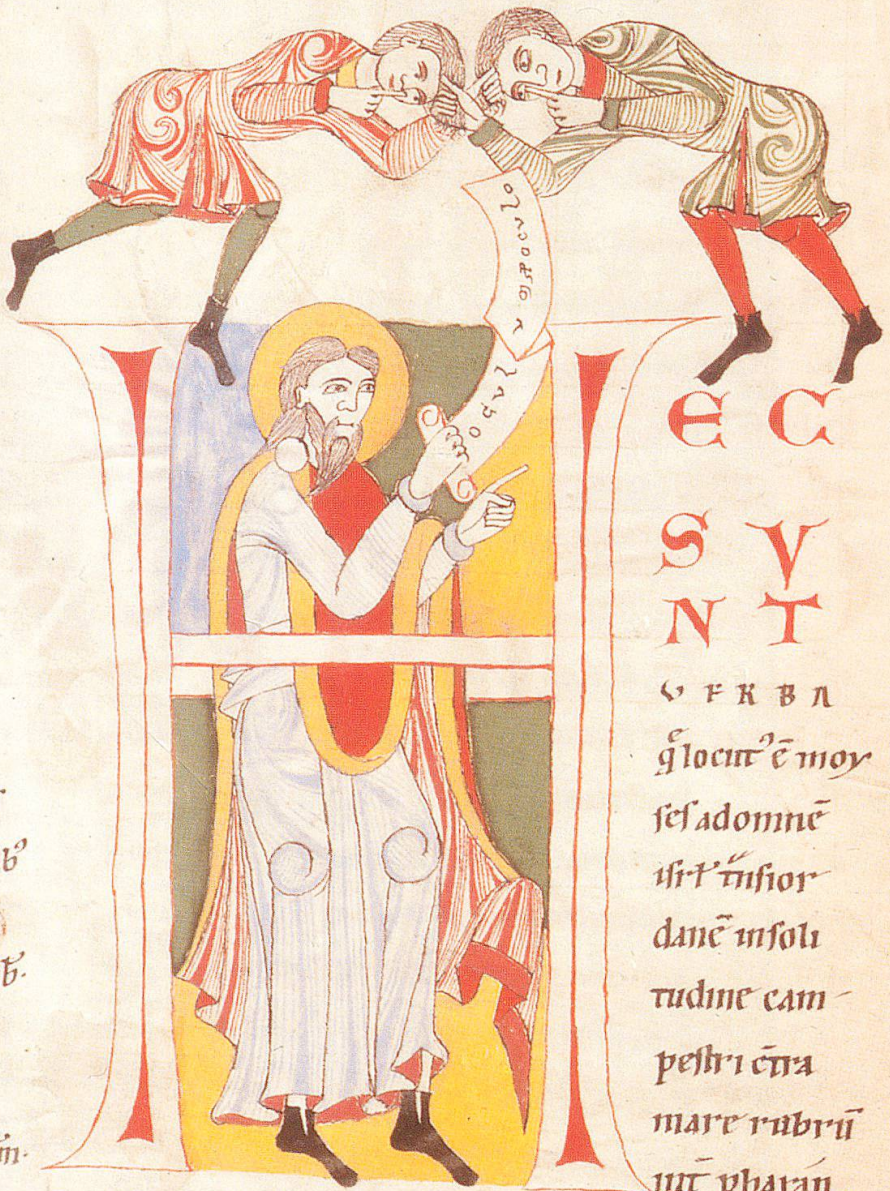 ocul
u p oculo
H
EC
SV
NT
VERBA
q̄ locutꝰ ē moy
ses ad omnē
isrł t̄nsior
danē in soli
tudine cam
pestri ct̄ra
mare rubrū
int̄ pharan